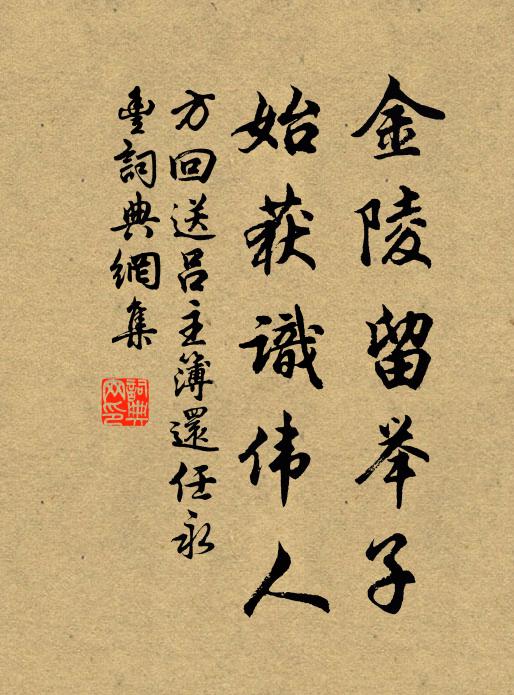 金陵留举子
始获識伟人
方回送吕主簿還任永
豊詞典網集
詞典